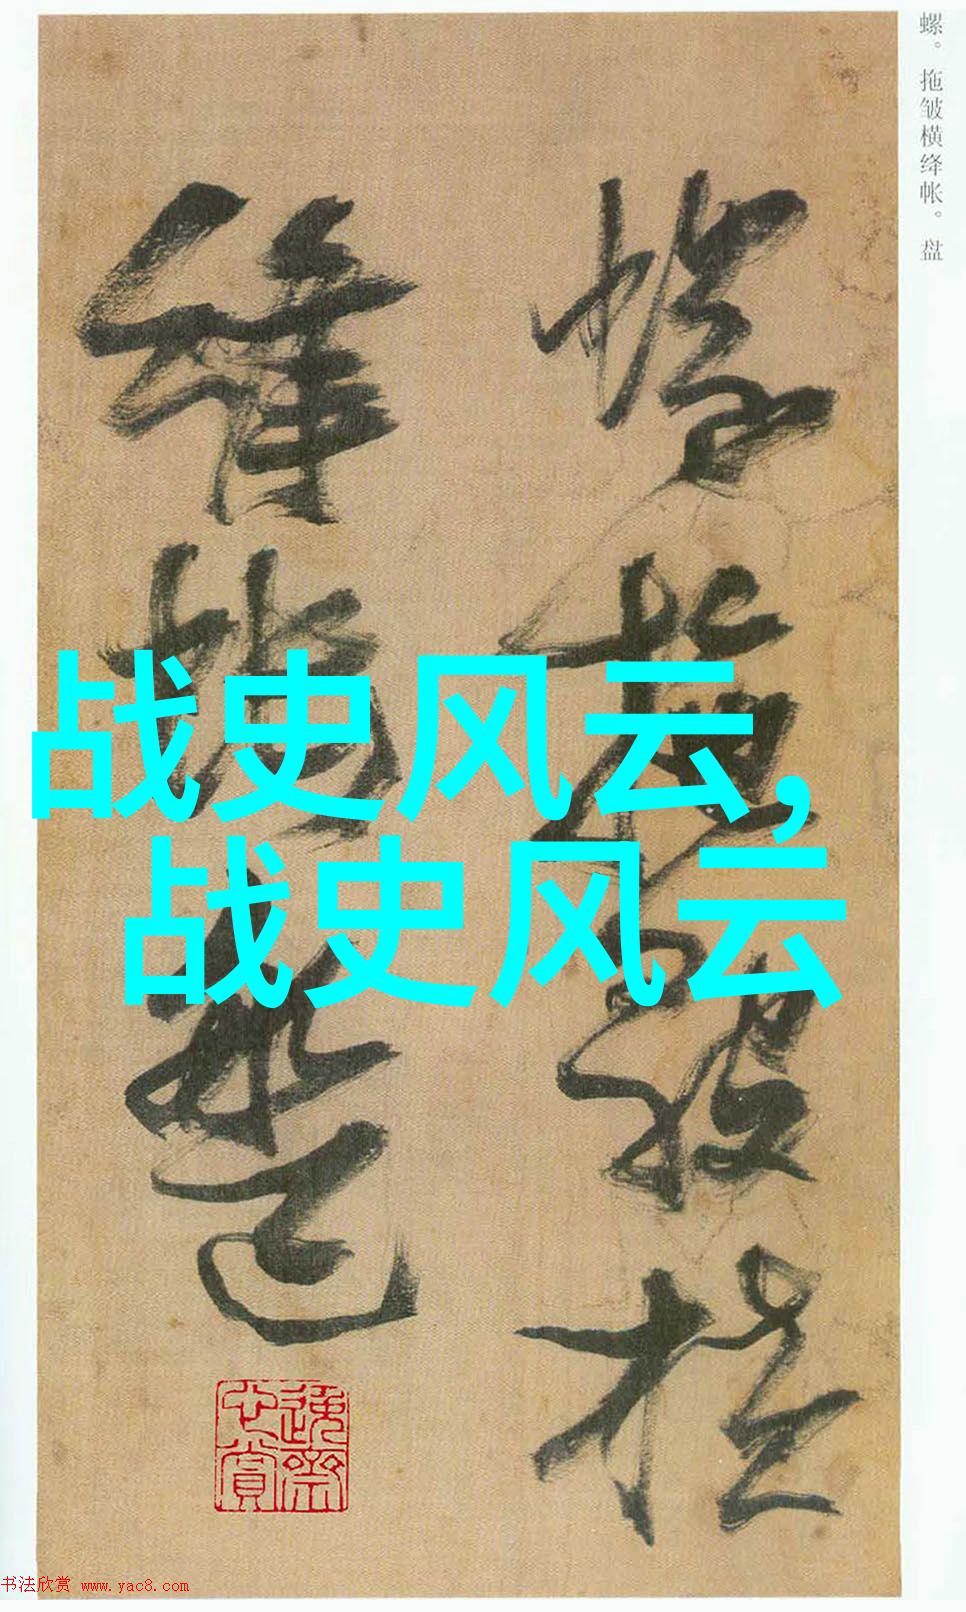 螺。拖皱横绛帐。盘
螺拖皱横
绛帐盘
战史风云,
战史风云
书法欣赏 www.yac8.com